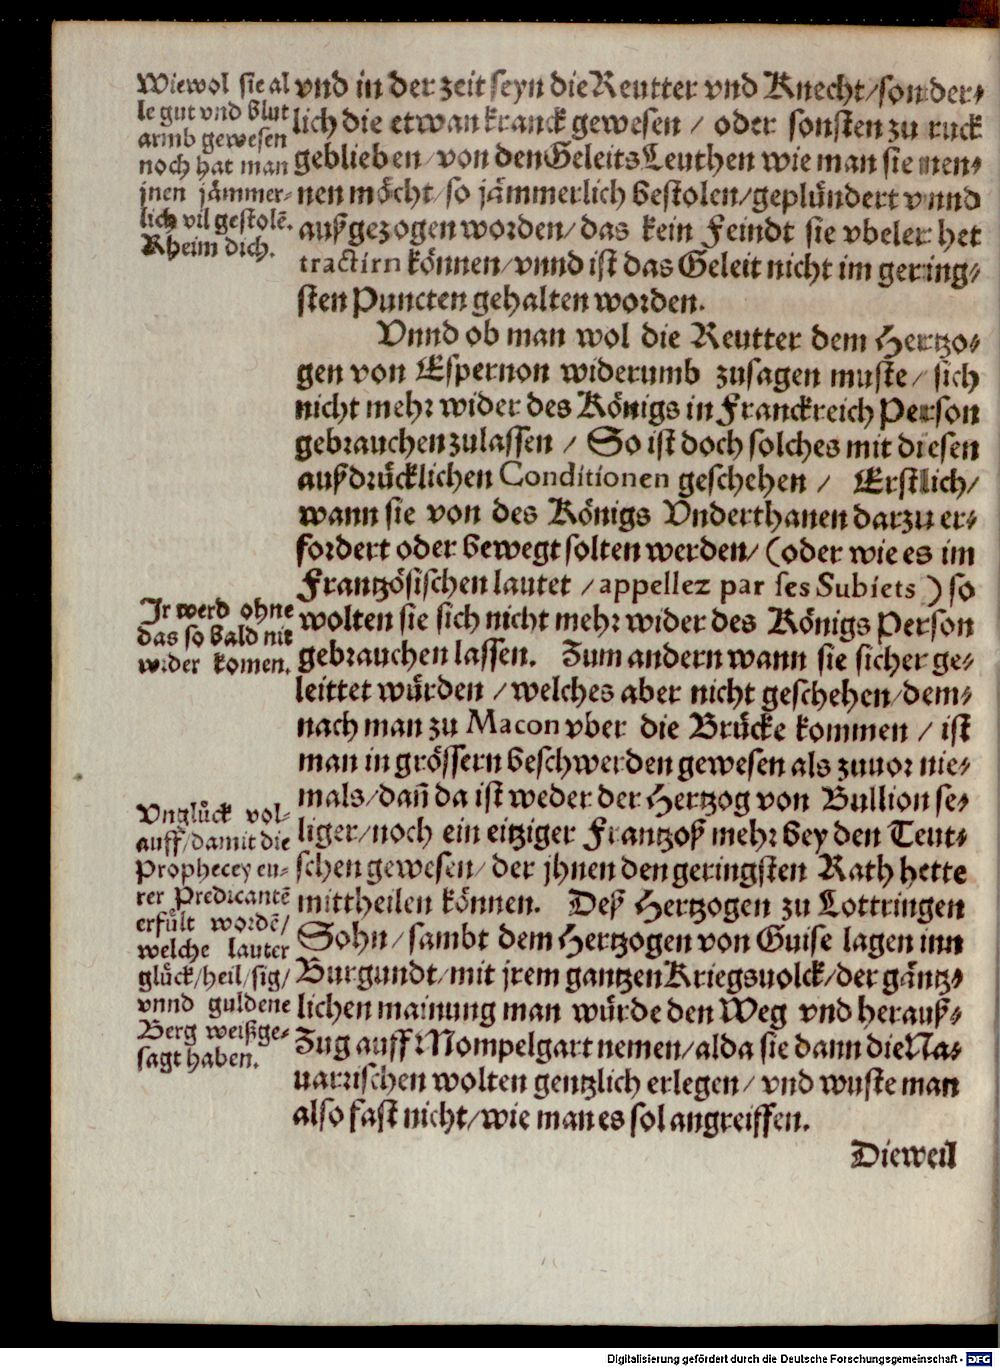 vnd in der zeit seyn die Reutter vnd Knecht/sonder-
lich die etwan kranck gewesen / oder sonsten zu ruck
geblieben/von den Geleits Leuthen wie man sie nen-
nen möcht/so jämmerlich bestolen/geplündert vnnd
außgezogen worden/das kein Feindt sie vbeler het
tractirn können/vnnd ist das Geleit nicht im gering-
sten Puncten gehalten worden.
Vnnd ob man wol die Reutter dem Hertzo-
gen von Espernon widerumb zusagen muste/sich
nicht mehr wider des Königs in Franckreich Person
gebrauchen zulassen / So ist doch solches mit diesen
außdrücklichen Conditionen geschehen / Erstlich/
wann sie von des Königs Vnderthanen darzu er-
fordert oder bewegt solten werden/(oder wie es im
Frantzösischen lautet /appellez par ses Subiets ) so
wolten sie sich nicht mehr wider des Königs Person
gebrauchen lassen. Zum andern wann sie sicher ge-
leittet würden /welches aber nicht geschehen/dem-
nach man zu Macon vber die Brücke kommen / ist
man in grössern beschwerden gewesen als zuuor nie-
mals/dañ da ist weder der Hertzog von Bullion se-
liger/noch ein eitziger Frantzoß mehr bey den Teut-
schen gewesen/der jhnen den geringsten Rath hette
mittheilen können. Deß Hertzogen zu Lottringen
Sohn/sambt dem Hertzogen von Guise lagen inn
Burgundt/mit jrem gantzen Kriegsuolck/der gäntz-
lichen mainung man würde den Weg vnd herauß-
Zug auff Mompelgart nemen/alda sie dann die Na-
uarrischen wolten gentzlich erlegen/vnd wuste man
also fast nicht/wie man es sol angreiffen.
Dieweil
Wiewol sie al
le gut vnd blut
armb gewesen
noch hat man
jnen jämmer-
lich vil gestolẽ.
Rheim dich.
Jr werd ohne
das so bald nit
wider komen.
Vnglück vol-
auff/damit die
Prophecey eu-
rer Predicantẽ
erfült wordẽ/
welche lauter
glück/heil/sig/
vnnd guldene
Berg weißge-
sagt haben.
Digitalisierung gefördert durch die Deutsche Forschungsgemeinschaft - DFG